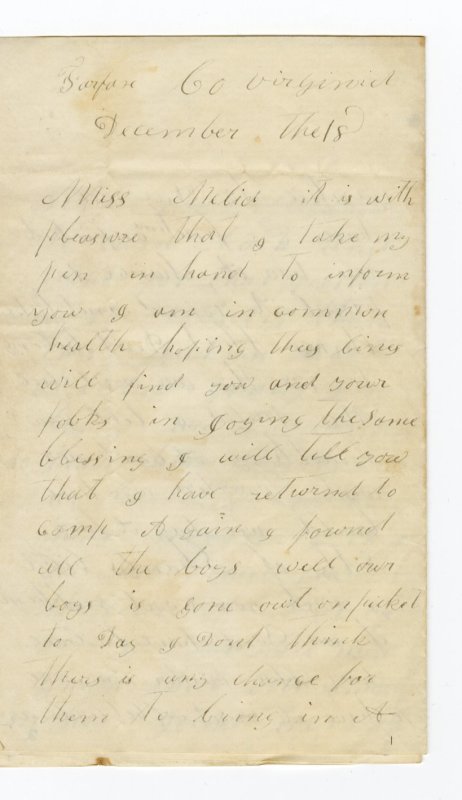 Farfare Co virginid
December the 18
Miss Melid it is with
pleaswre that I take my
pen in hand to inform
you I am in common
health hoping thees lines
will find you and your
folks in Joying the same
blessing I will tell you
that I have returnd to
Camp A gain I fownd
all the boys well our
boys is gone out on picket
to Day I Dont think
thers is any chance for
them to bring in A
1